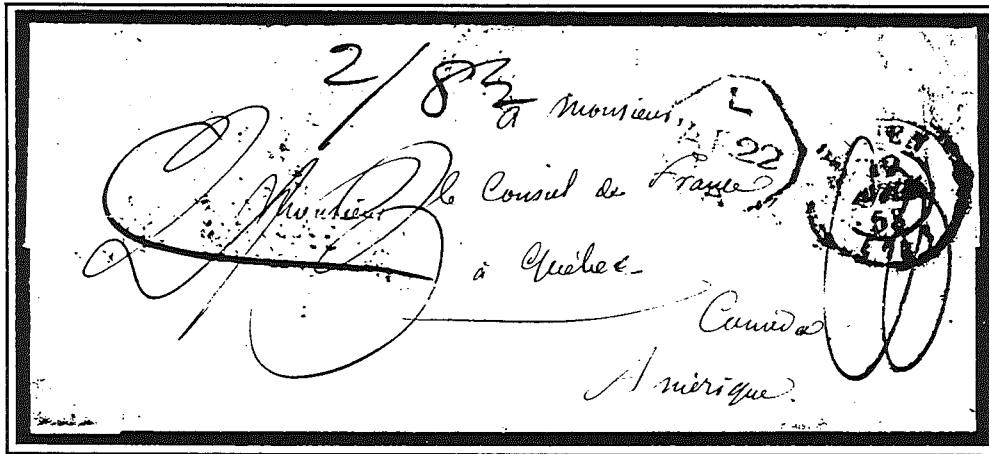 2/8½
à Monsieur
Monsieur le Consul de France
à Québec
Canada
Amérique.
L
22
EN
12
58